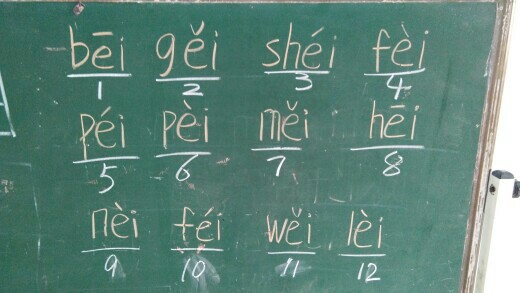 bēi gěi shéi fèi
1 2 3 4
péi pèi měi hēi
5 6 7 8
nèi féi wěi lèi
9 10 11 12